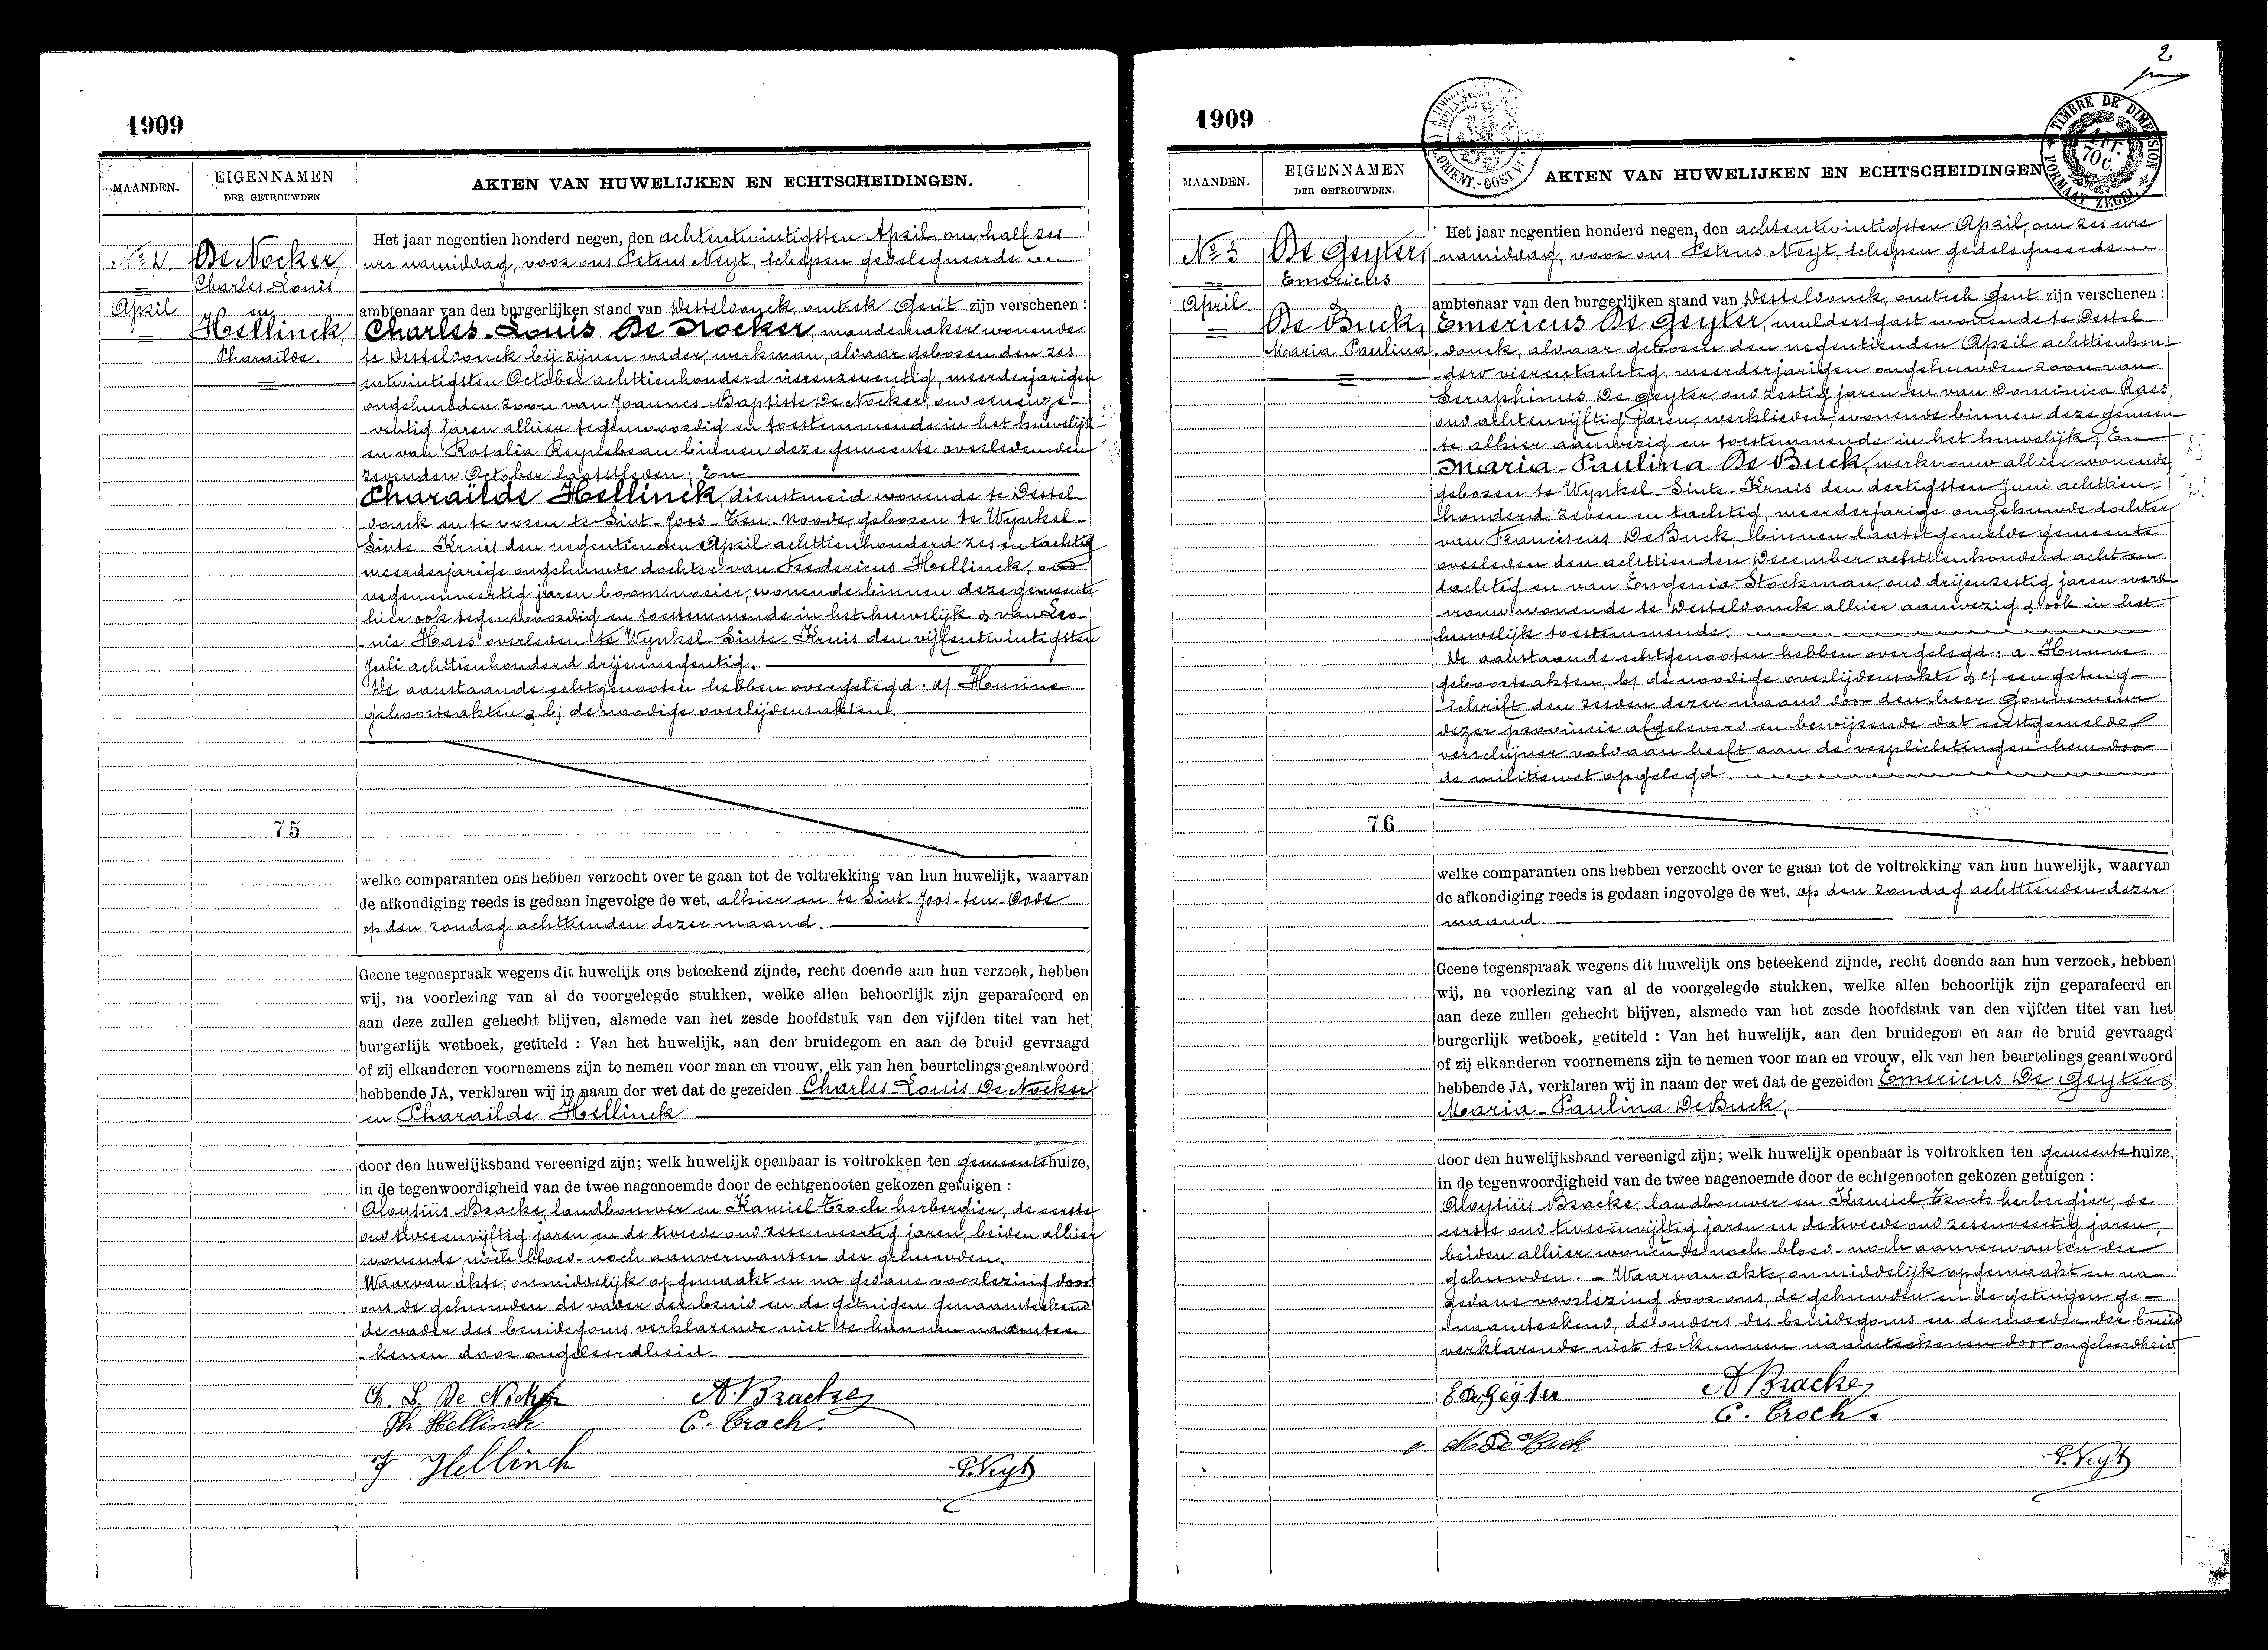 1909
MAANDEN.
EIGENNAMEN
DER GETROUWDEN
AKTEN VAN HUWELIJKEN EN ECHTSCHEIDINGEN.
De Nocker
Charles-Louis
en
Hellinck,
Pharaïlde.
April
Het jaar negentien honderd negen, den achtentwintigsten April, om half zes
ure namiddag, voor ons Petrus Neyt, schepen gedelegueerde
ambtenaar van den burgerlijken stand van Desteldonck, omtrek Gent zijn verschenen :
Charles-Louis De Nocker, mandemaker wonende
te Desteldonck bij zijnen vader, werkman, aldaar geboren den zes
entwintigsten October achttienhonderd vierenzeventig, meerderjarigen
ongehuwden zoon van Joannes-Baptiste De Nocker, oud eenenze-
ventig jaren alhier tegenwoordig en toestemmende in het huwelijk
en van Rosalia Reynebeau binnen deze gemeente overleden den
zevenden October laatstleden; En
Pharaïlde Hellinck, dienstmeid wonende te Destel-
donck en te voren te Sint-Joos-Ten-Noode, geboren te Wynkel-
Sinte-Kruis den negentienden April achttienhonderd zesentachtig
meerderjarige ongehuwde dochter van Fredericus Hellinck, oud
negenenveertig jaren boomsnoeier, wonende binnen deze gemeente
hier ook tegenwoordig en toestemmende in het huwelijk & van Leo-
nie Haes overleden te Wynkel-Sinte-Kruis den vijfentwintigsten
Juli achttienhonderd drijennegentig.
De aanstaande echtgenooten hebben overgelegd: a/ Hunne
geboorteakten & b/ de noodige overlijdensakten.
75
welke comparanten ons hebben verzocht over te gaan tot de voltrekking van hun huwelijk, waarvan
de afkondiging reeds is gedaan ingevolge de wet, alhier en te Sint-Joos-ten-Oode
op den zondag achttienden dezer maand.
Geene tegenspraak wegens dit huwelijk ons beteekend zijnde, recht doende aan hun verzoek, hebben
wij, na voorlezing van al de voorgelegde stukken, welke allen behoorlijk zijn geparafeerd en
aan deze zullen gehecht blijven, alsmede van het zesde hoofdstuk van den vijfden titel van het
burgerlijk wetboek, getiteld : Van het huwelijk, aan den bruidegom en aan de bruid gevraagd
of zij elkanderen voornemens zijn te nemen voor man en vrouw, elk van hen beurtelings geantwoord
hebbende JA, verklaren wij in naam der wet dat de gezeiden Charles-Louis De Nocker
en Pharaïlde Hellinck
door den huwelijksband vereenigd zijn; welk huwelijk openbaar is voltrokken ten gemeentehuize,
in de tegenwoordigheid van de twee nagenoemde door de echtgenooten gekozen getuigen :
Aloysiüs Bracke, landbouwer en Kamiel Croch herbergier, de eerste
oud tweeenvijftig jaren en de tweede oud zesenveertig jaren, beiden alhier
wonende noch bloed- noch aanverwanten der gehuwden.
Waarvan akte, onmiddelijk opgemaakt en na gedane voorlezing door
ons de gehuwden de vader der bruid en de getuigen genaamteekend
de vader des bruidegoms verklarende niet te kunnen naamtee-
kenen door ongeleerdheid.
Ch. L. De Nocker
A. Bracke
Ph Hellinck
C. Croch.
F Hellinck
P. Neyt
2
1909
TIMBRE DE DIMENSION
FORMAAT ZEGEL
70 C.
MAANDEN.
EIGENNAMEN
DER GETROUWDEN.
AKTEN VAN HUWELIJKEN EN ECHTSCHEIDINGEN
No 5
De Geyter,
Emericus
April
De Buck,
Maria Paulina
Het jaar negentien honderd negen, den achtentwintigsten April, om zes ure
namiddag, voor ons Petrus Neyt, schepen gedelegueerde
ambtenaar van den burgerlijken stand van Desteldonck, omtrek Gent zijn verschenen :
Emericus De Geyter, muldersgast wonende te Destel
donck, aldaar geboren den negentienden April achttienhon-
derd vierentachtig, meerderjarigen ongehuwden zoon van
Seraphinus De Geyter, oud zestig jaren en van Dominica Raes
oud achtenvijftig jaren, werklieden, wonende binnen deze gemeen-
te alhier aanwezig en toestemmende in het huwelijk; En
Maria-Paulina De Buck, werkvrouw alhier wonende
geboren te Wynkel-Sinte-Kruis den dertigsten Juni achttien-
honderd zeven en tachtig, meerderjarige ongehuwde dochter
van Franciscus De Buck, binnen laatstgemelde gemeente
overleden den achttienden December achttienhonderd acht en
tachtig en van Eugenia Stockman, oud drijenzestig jaren werk-
vrouw wonende te Desteldonck alhier aanwezig & ook in het
huwelijk toestemmende.
De aanstaande echtgenooten hebben overgelegd: a. Hunne
geboorteakten, b/ de noodige overlijdensakte & c/ een getuig-
schrift den zesden dezer maand door den heer Gouverneur
dezer provincie afgeleverd en bewijzende dat eerstgemelde
verschijner voldaan heeft aan de verplichtingen hem door
de militiewet opgelegd.
76
welke comparanten ons hebben verzocht over te gaan tot de voltrekking van hun huwelijk, waarvan
de afkondiging reeds is gedaan ingevolge de wet, op den zondag achttienden dezer
maand.
Geene tegenspraak wegens dit huwelijk ons beteekend zijnde, recht doende aan hun verzoek, hebben
wij, na voorlezing van al de voorgelegde stukken, welke allen behoorlijk zijn geparafeerd en
aan deze zullen gehecht blijven, alsmede van het zesde hoofdstuk van den vijfden titel van het
burgerlijk wetboek, getiteld : Van het huwelijk, aan den bruidegom en aan de bruid gevraagd
of zij elkanderen voornemens zijn te nemen voor man en vrouw, elk van hen beurtelings geantwoord
hebbende JA, verklaren wij in naam der wet dat de gezeiden Emericus De Geyter &
Maria-Paulina De Buck,
door den huwelijksband vereenigd zijn; welk huwelijk openbaar is voltrokken ten gemeentehuize.
in de tegenwoordigheid van de twee nagenoemde door de echtgenooten gekozen getuigen :
Aloysiüs Bracke, landbouwer en Kamiel Croch herbergier, de
eerste oud tweeënvijftig jaren en de tweede oud zesenveertig jaren,
beiden alhier wonende noch bloed- noch aanverwanten der
gehuwden. - Waarvan akte, onmiddelijk opgemaakt en na
gedane voorlezing door ons, de gehuwden en de getuigen ge-
naamteekend, de ouders des bruidegoms en de moeder der bruid
verklarende niet te kunnen naamteekenen door ongeleerdheid.
E De Geyter
A Bracke
C. Croch.
M De Buck
P. Neyt